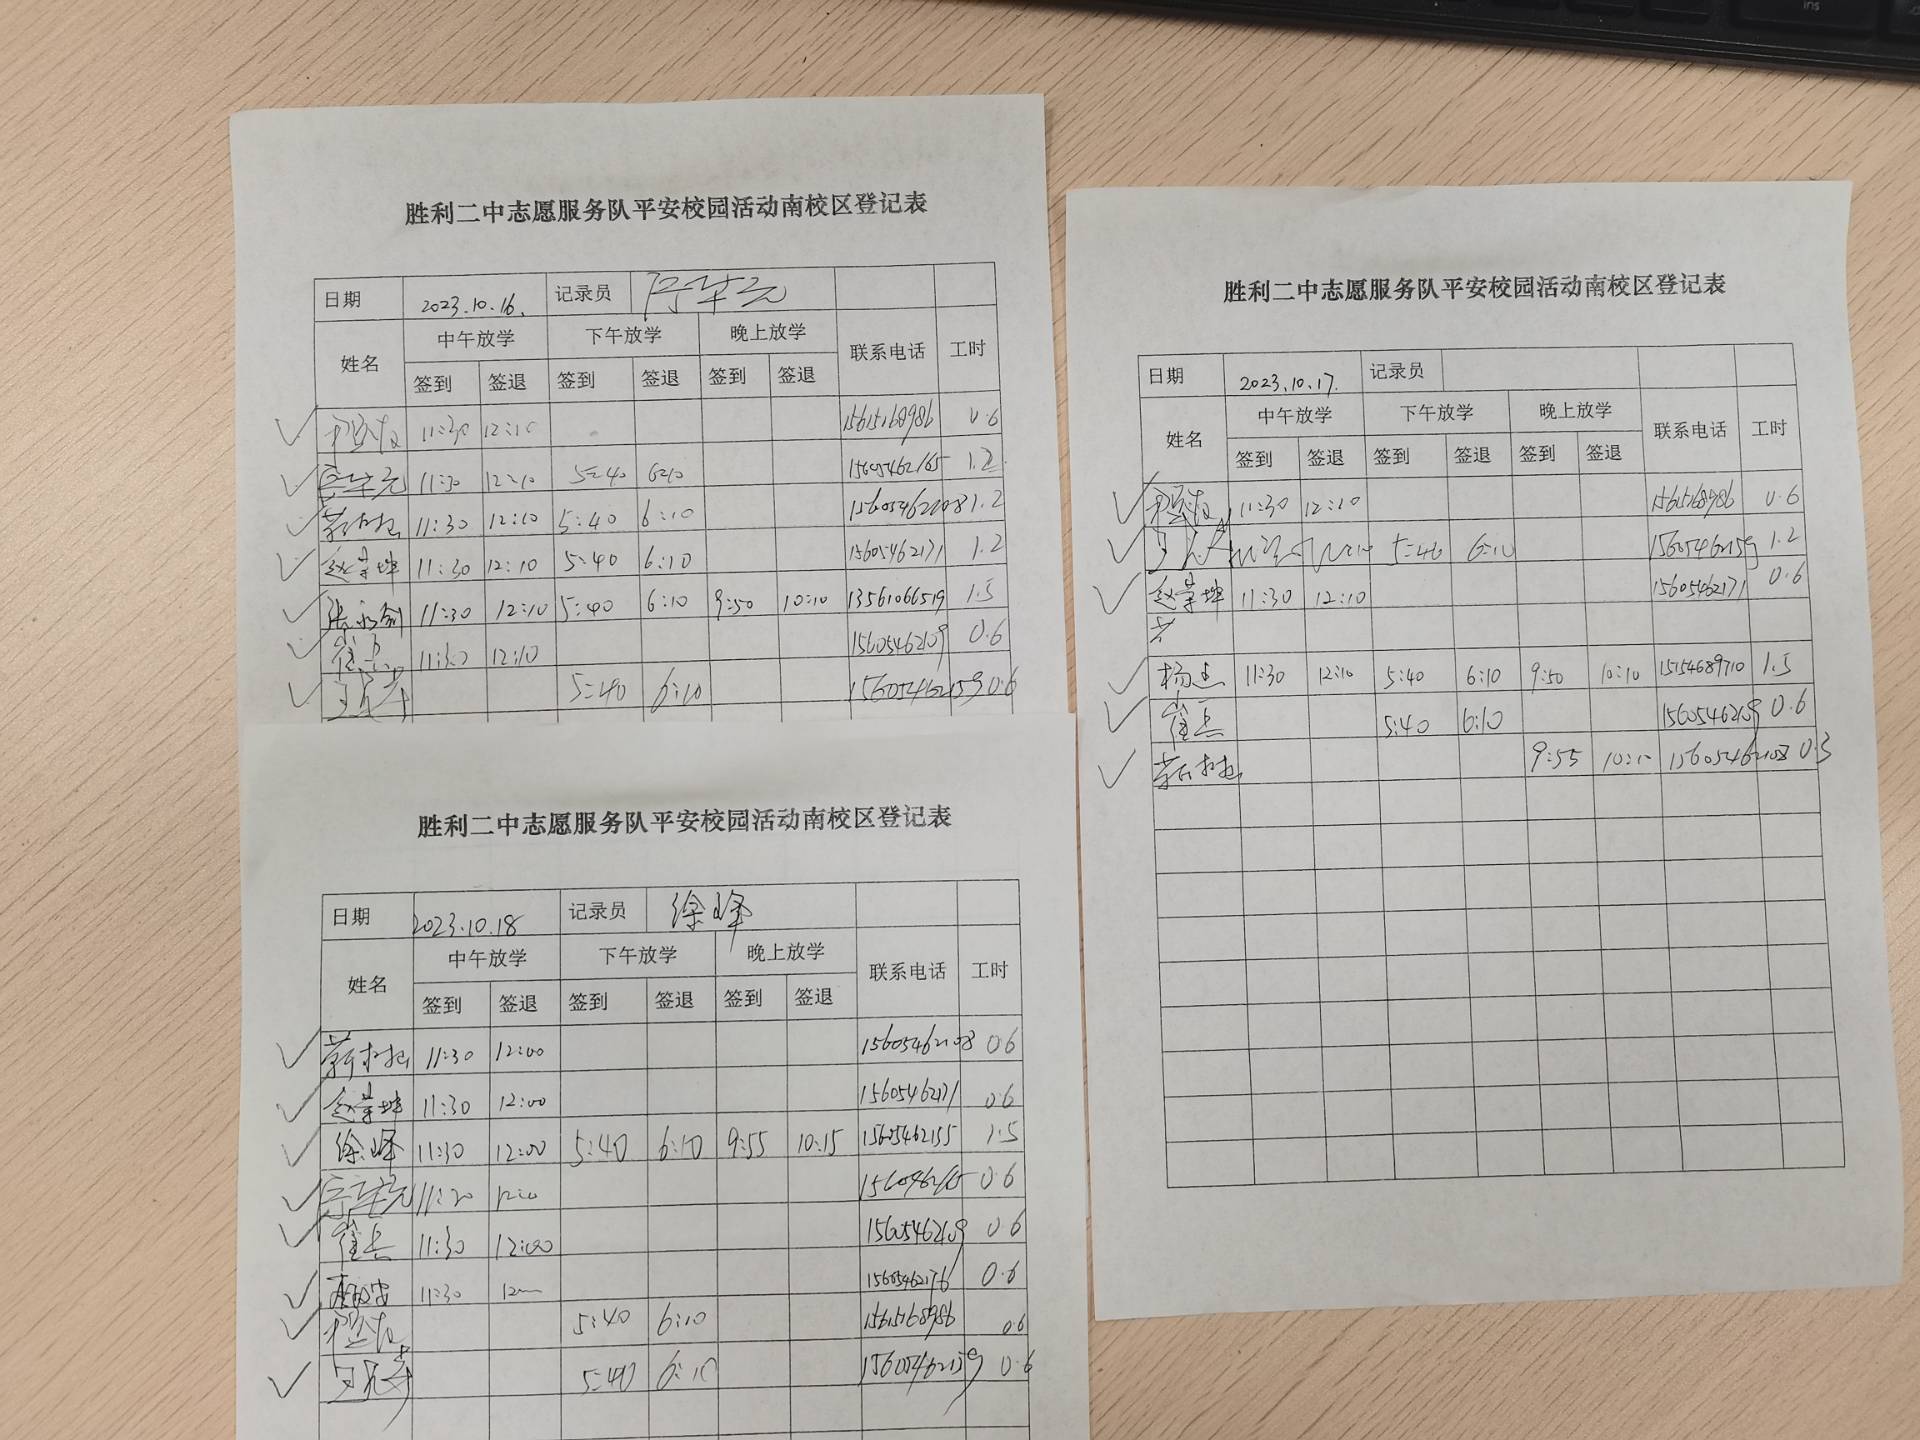 胜利二中志愿服务队平安校园活动南校区登记表
日期 2023.10.16. 记录员
姓名 中午放学 下午放学 晚上放学 联系电话 工时
签到 签退 签到 签退 签到 签退
11:30 12:10 15615168986 0.6
11:30 12:10 5:40 6:10 15605462165 1.2
11:30 12:10 5:40 6:10 15605462108 1.2
赵荣坤 11:30 12:10 5:40 6:10 15605462171 1.2
张永刚 11:30 12:10 5:40 6:10 9:50 10:10 13561066519 1.5
崔兵 11:30 12:10 15605462109 0.6
5:40 6:10 15605462159 0.6
胜利二中志愿服务队平安校园活动南校区登记表
日期 2023.10.18 记录员 徐峰
姓名 中午放学 下午放学 晚上放学 联系电话 工时
签到 签退 签到 签退 签到 签退
11:30 12:00 15605462108 0.6
赵荣坤 11:30 12:00 15605462171 0.6
徐峰 11:30 12:00 5:40 6:10 9:55 10:15 15605462155 1.5
0.6
崔兵 11:30 12:00 15605462109 0.6
11:30 15605462176 0.6
5:40 6:10 15615168986 0.6
5:40 6:10 15605462159 0.6
胜利二中志愿服务队平安校园活动南校区登记表
日期 2023.10.17. 记录员
姓名 中午放学 下午放学 晚上放学 联系电话 工时
签到 签退 签到 签退 签到 签退
11:30 12:10 15615168986 0.6
5:40 6:10 15605462159 1.2
赵荣坤 11:30 12:10 15605462171 0.6
杨杰 11:30 12:10 5:40 6:10 9:50 10:10 15154689710 1.5
崔兵 5:40 6:10 15605462109 0.6
9:55 10:10 15605462108 0.3
ins